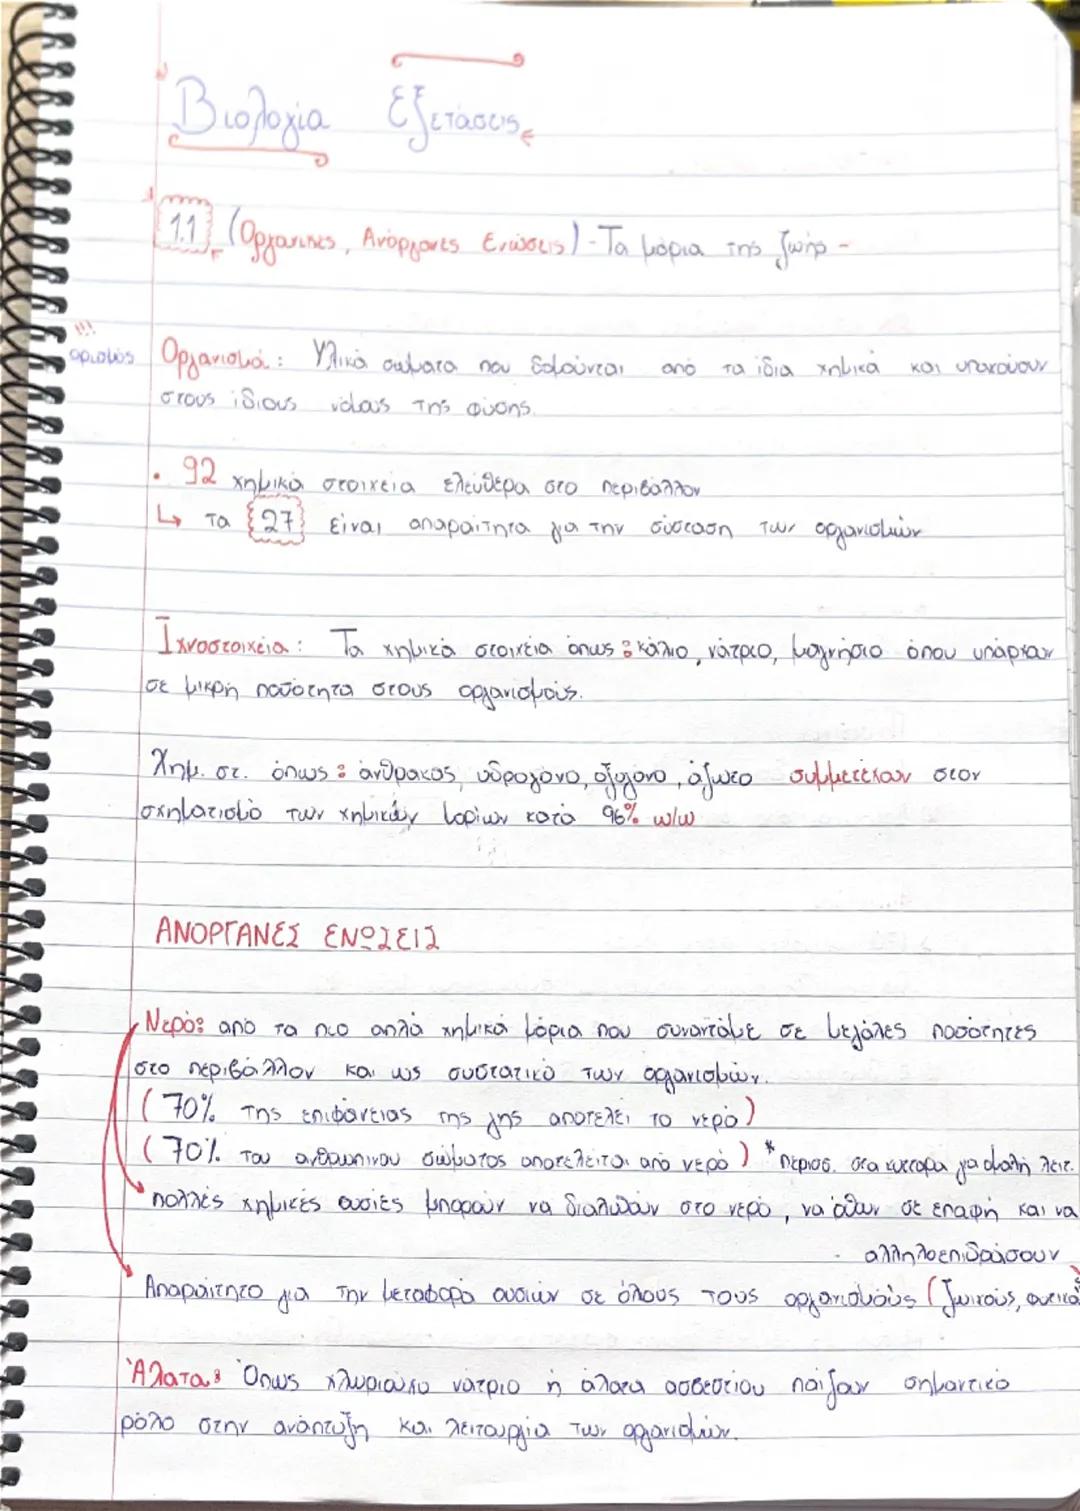 Βιολογία Εξετάσεις
1.1 (Οργανικές, Ανόργανες Ενώσεις) - Τα μόρια της ζωής -
!!!
ορισμός Οργανισμοί: Υλικά σώματα που δομούνται από τα ίδια χημικά και υπακούουν
στους ίδιους νόμους της φύσης.
• 92 χημικά στοιχεία ελεύθερα στο περιβάλλον
↳ τα 27 είναι απαραίτητα για την σύσταση των οργανισμών
Ιχνοστοιχεία: Τα χημικά στοιχεία όπως: κάλιο, νάτριο, μαγνήσιο όπου υπάρχουν
σε μικρή ποσότητα στους οργανισμούς.
Χημ. στ. όπως: άνθρακας, υδρογόνο, οξυγόνο, άζωτο συμμετέχουν στον
σχηματισμό των χημικών μορίων κατά 96% w/w
ΑΝΟΡΓΑΝΕΣ ΕΝΩΣΕΙΣ
Νερό: από τα πιο απλά χημικά μόρια που συναντάμε σε μεγάλες ποσότητες
στο περιβάλλον και ως συστατικό των οργανισμών.
(70% της επιφάνειας της γης αποτελεί το νερό)
(70% του ανθρώπινου σώματος αποτελείται από νερό) * περισσ. στα κύτταρα για ομαλή λειτ.
πολλές χημικές ουσίες μπορούν να διαλυθούν στο νερό, να έλθουν σε επαφή και να
αλληλοεπιδράσουν
Απαραίτητο για την μεταφορά ουσιών σε όλους τους οργανισμούς (ζωικούς, φυτικά
Άλατα: Όπως χλωριούχο νάτριο ή άλατα ασβεστίου παίζουν σημαντικό
ρόλο στην ανάπτυξη και λειτουργία των οργανισμών.